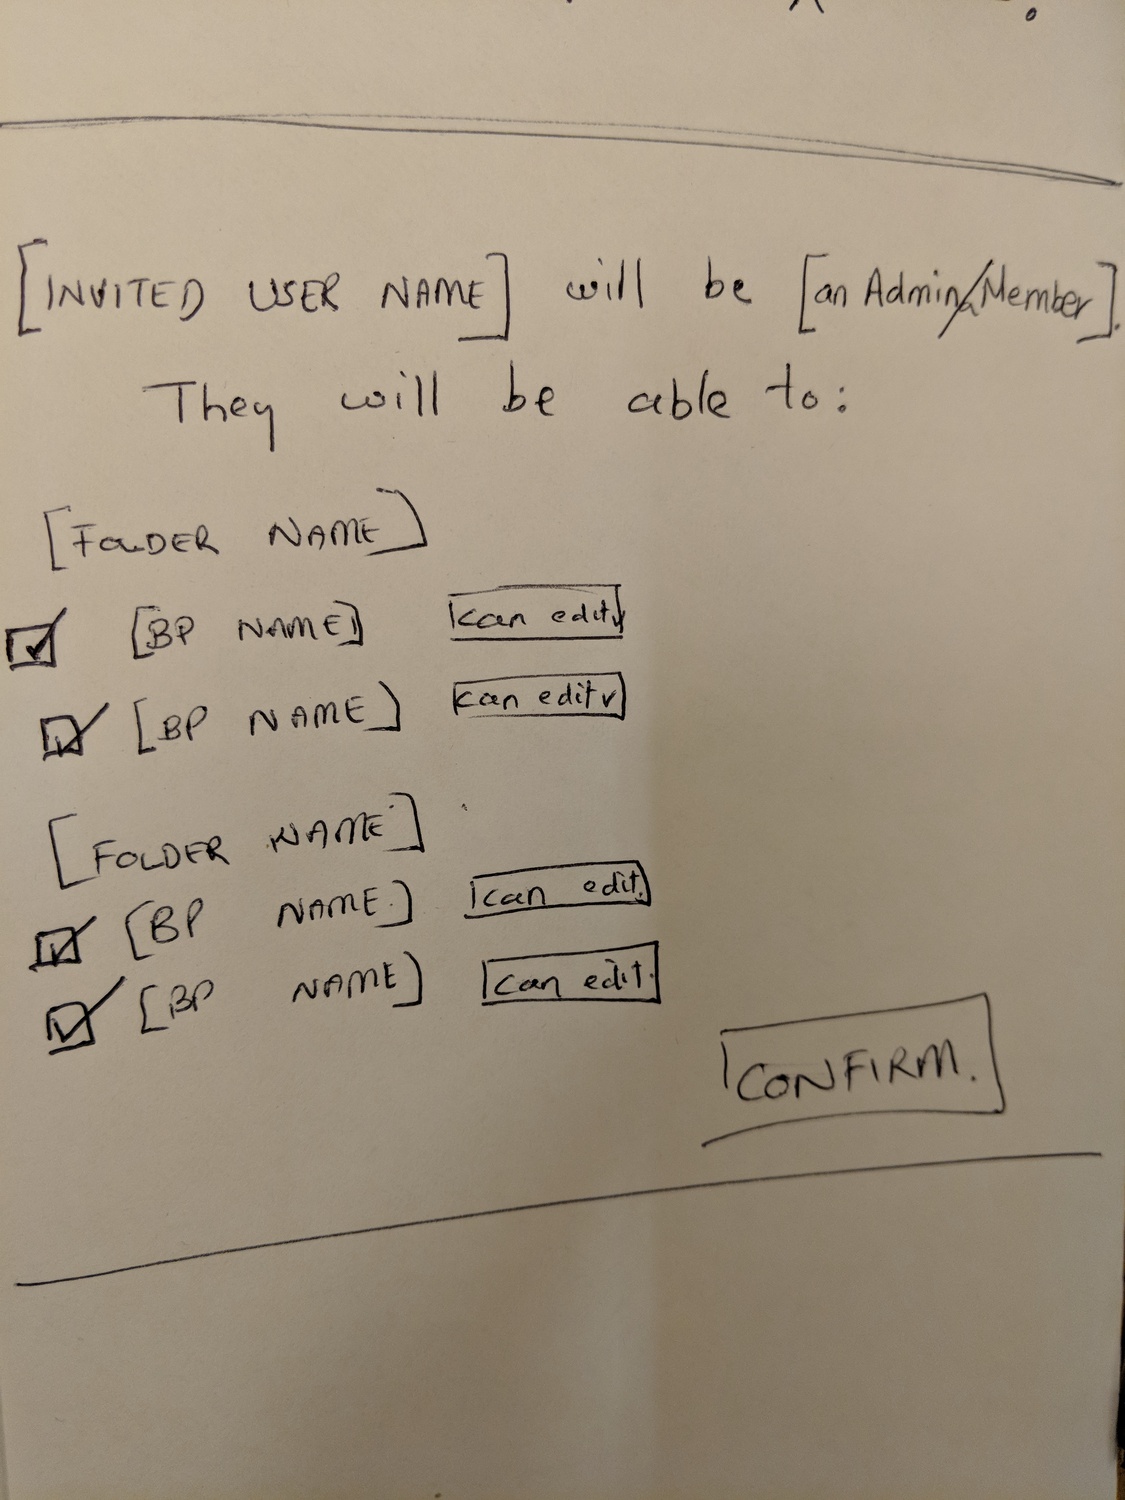 [INVITED USER NAME] will be [an Admin/a Member].
They will be able to:
[FOLDER NAME]
[BP NAME] can edit v
[BP NAME] can edit v
[FOLDER NAME]
[BP NAME] can edit.
[BP NAME] can edit.
CONFIRM.